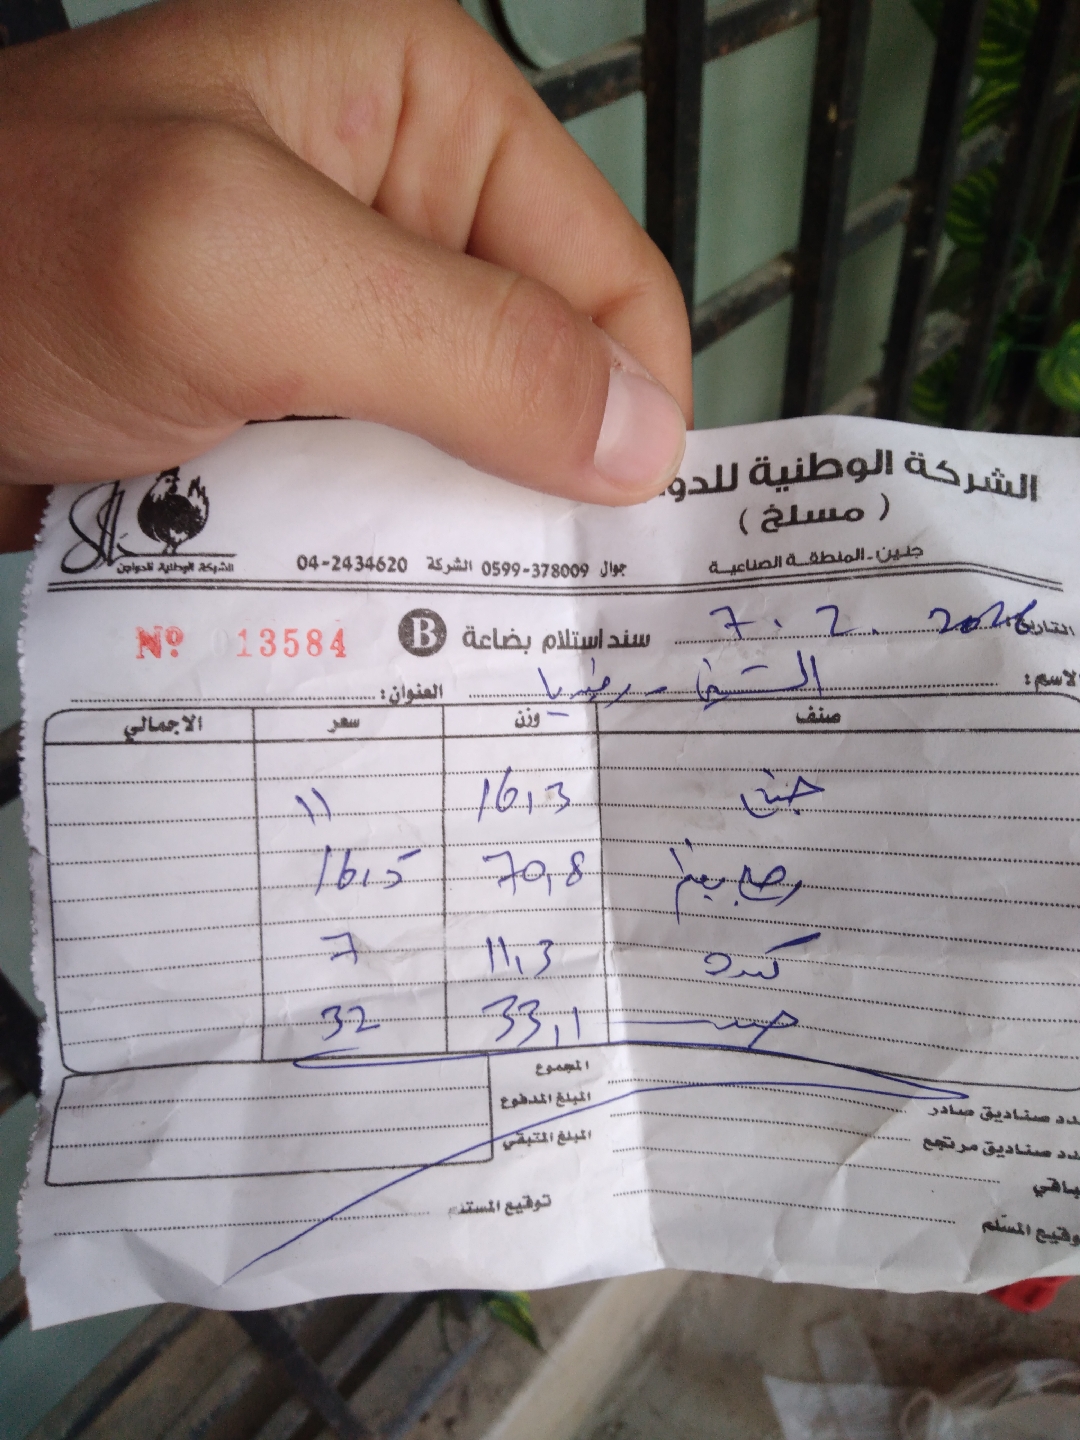 الشركة الوطنية للدو
( مسلخ )
جنين - المنطقة الصناعية
جوال 0599-378009 الشركة 04-2434620
الشركة الوطنية للدواجن
التاريخ 7 . 2 . 2026
سند استلام بضاعة B Nº 013584
الاسم: - رفيديا العنوان:
صنف وزن سعر الاجمالي
16,3 11
70,8 16,5
كبده 11,3 7
33,1 32
المجموع
المبلغ المدفوع
المبلغ المتبقي
توقيع المستلم
دد صناديق صادر
دد صناديق مرتجع
باقي
وقيع المسلّم